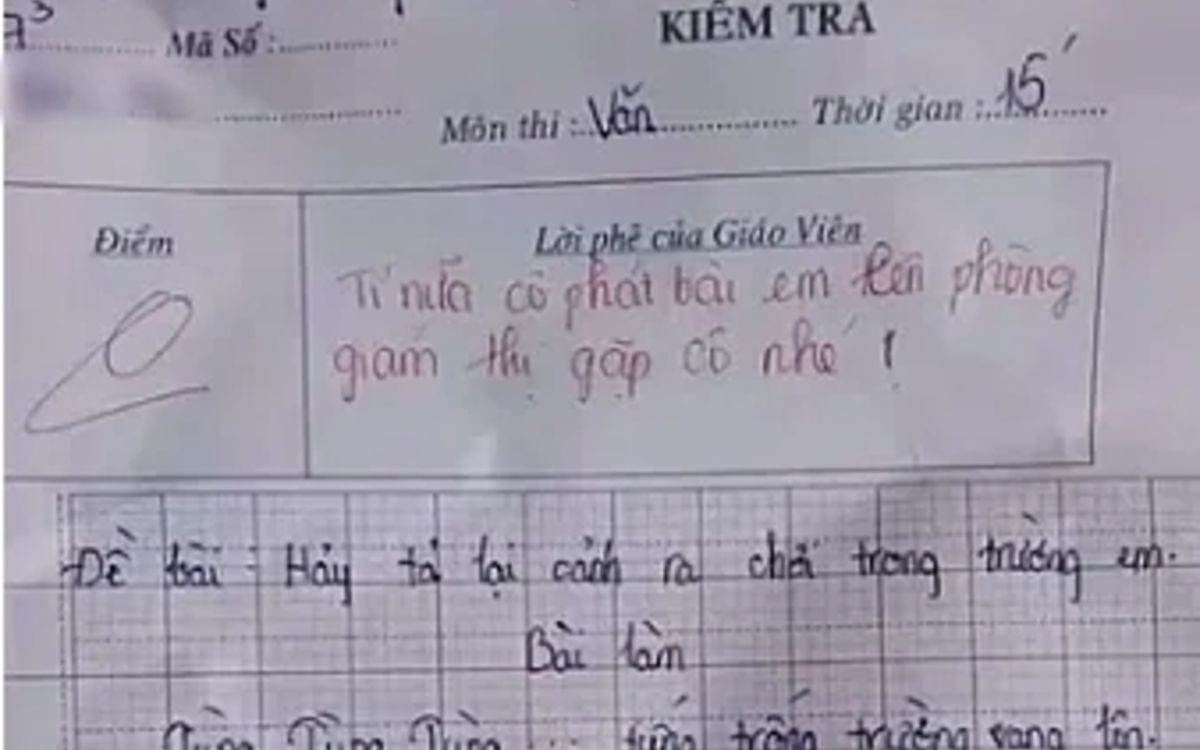 7³ Mã Số :
KIỂM TRA
Môn thi : Văn Thời gian : 15'
Điểm
Lời phê của Giáo Viên
Tí nữa cô phát bài em lên phòng
giám thị gặp cô nhé !
0
Đề bài : Hãy tả lại cảnh ra chơi trong trường em.
Bài làm
Tùng Tùng Tùng ... tiếng trống trường vang lên.